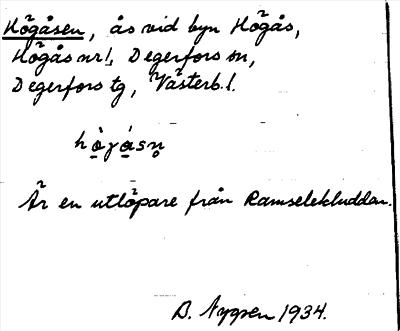 Högåsen, ås vid byn Högås,
Högås nr 1, Degerfors sn,
Degerfors tg, Västerb. l.
Är en utlöpare från Ramselekluddan.
B. Nygren 1934.